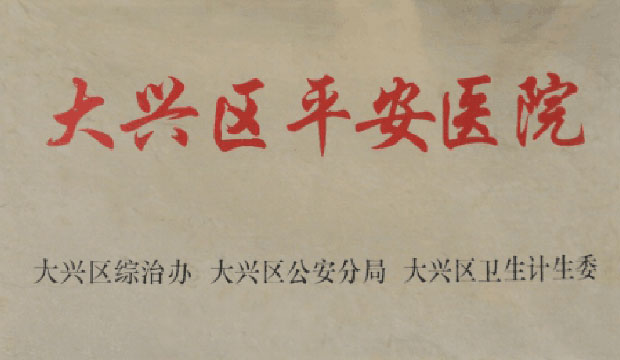 大兴区平安医院
大兴区综治办 大兴区公安分局 大兴区卫生计生委